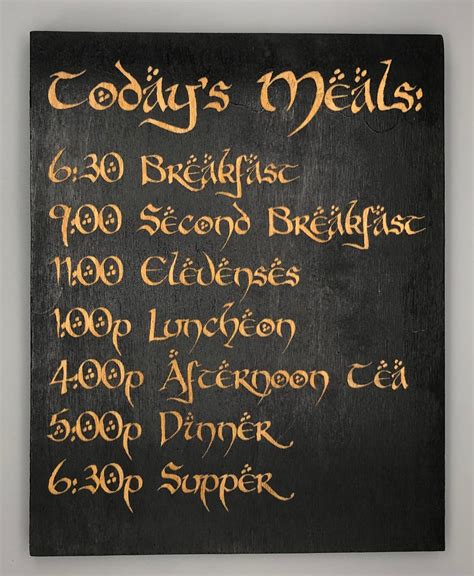 Today's Meals:
6:30 Breakfast
9:00 Second Breakfast
11:00 Elevenses
1:00p Luncheon
4:00p Afternoon Tea
5:00p Dinner
6:30p Supper